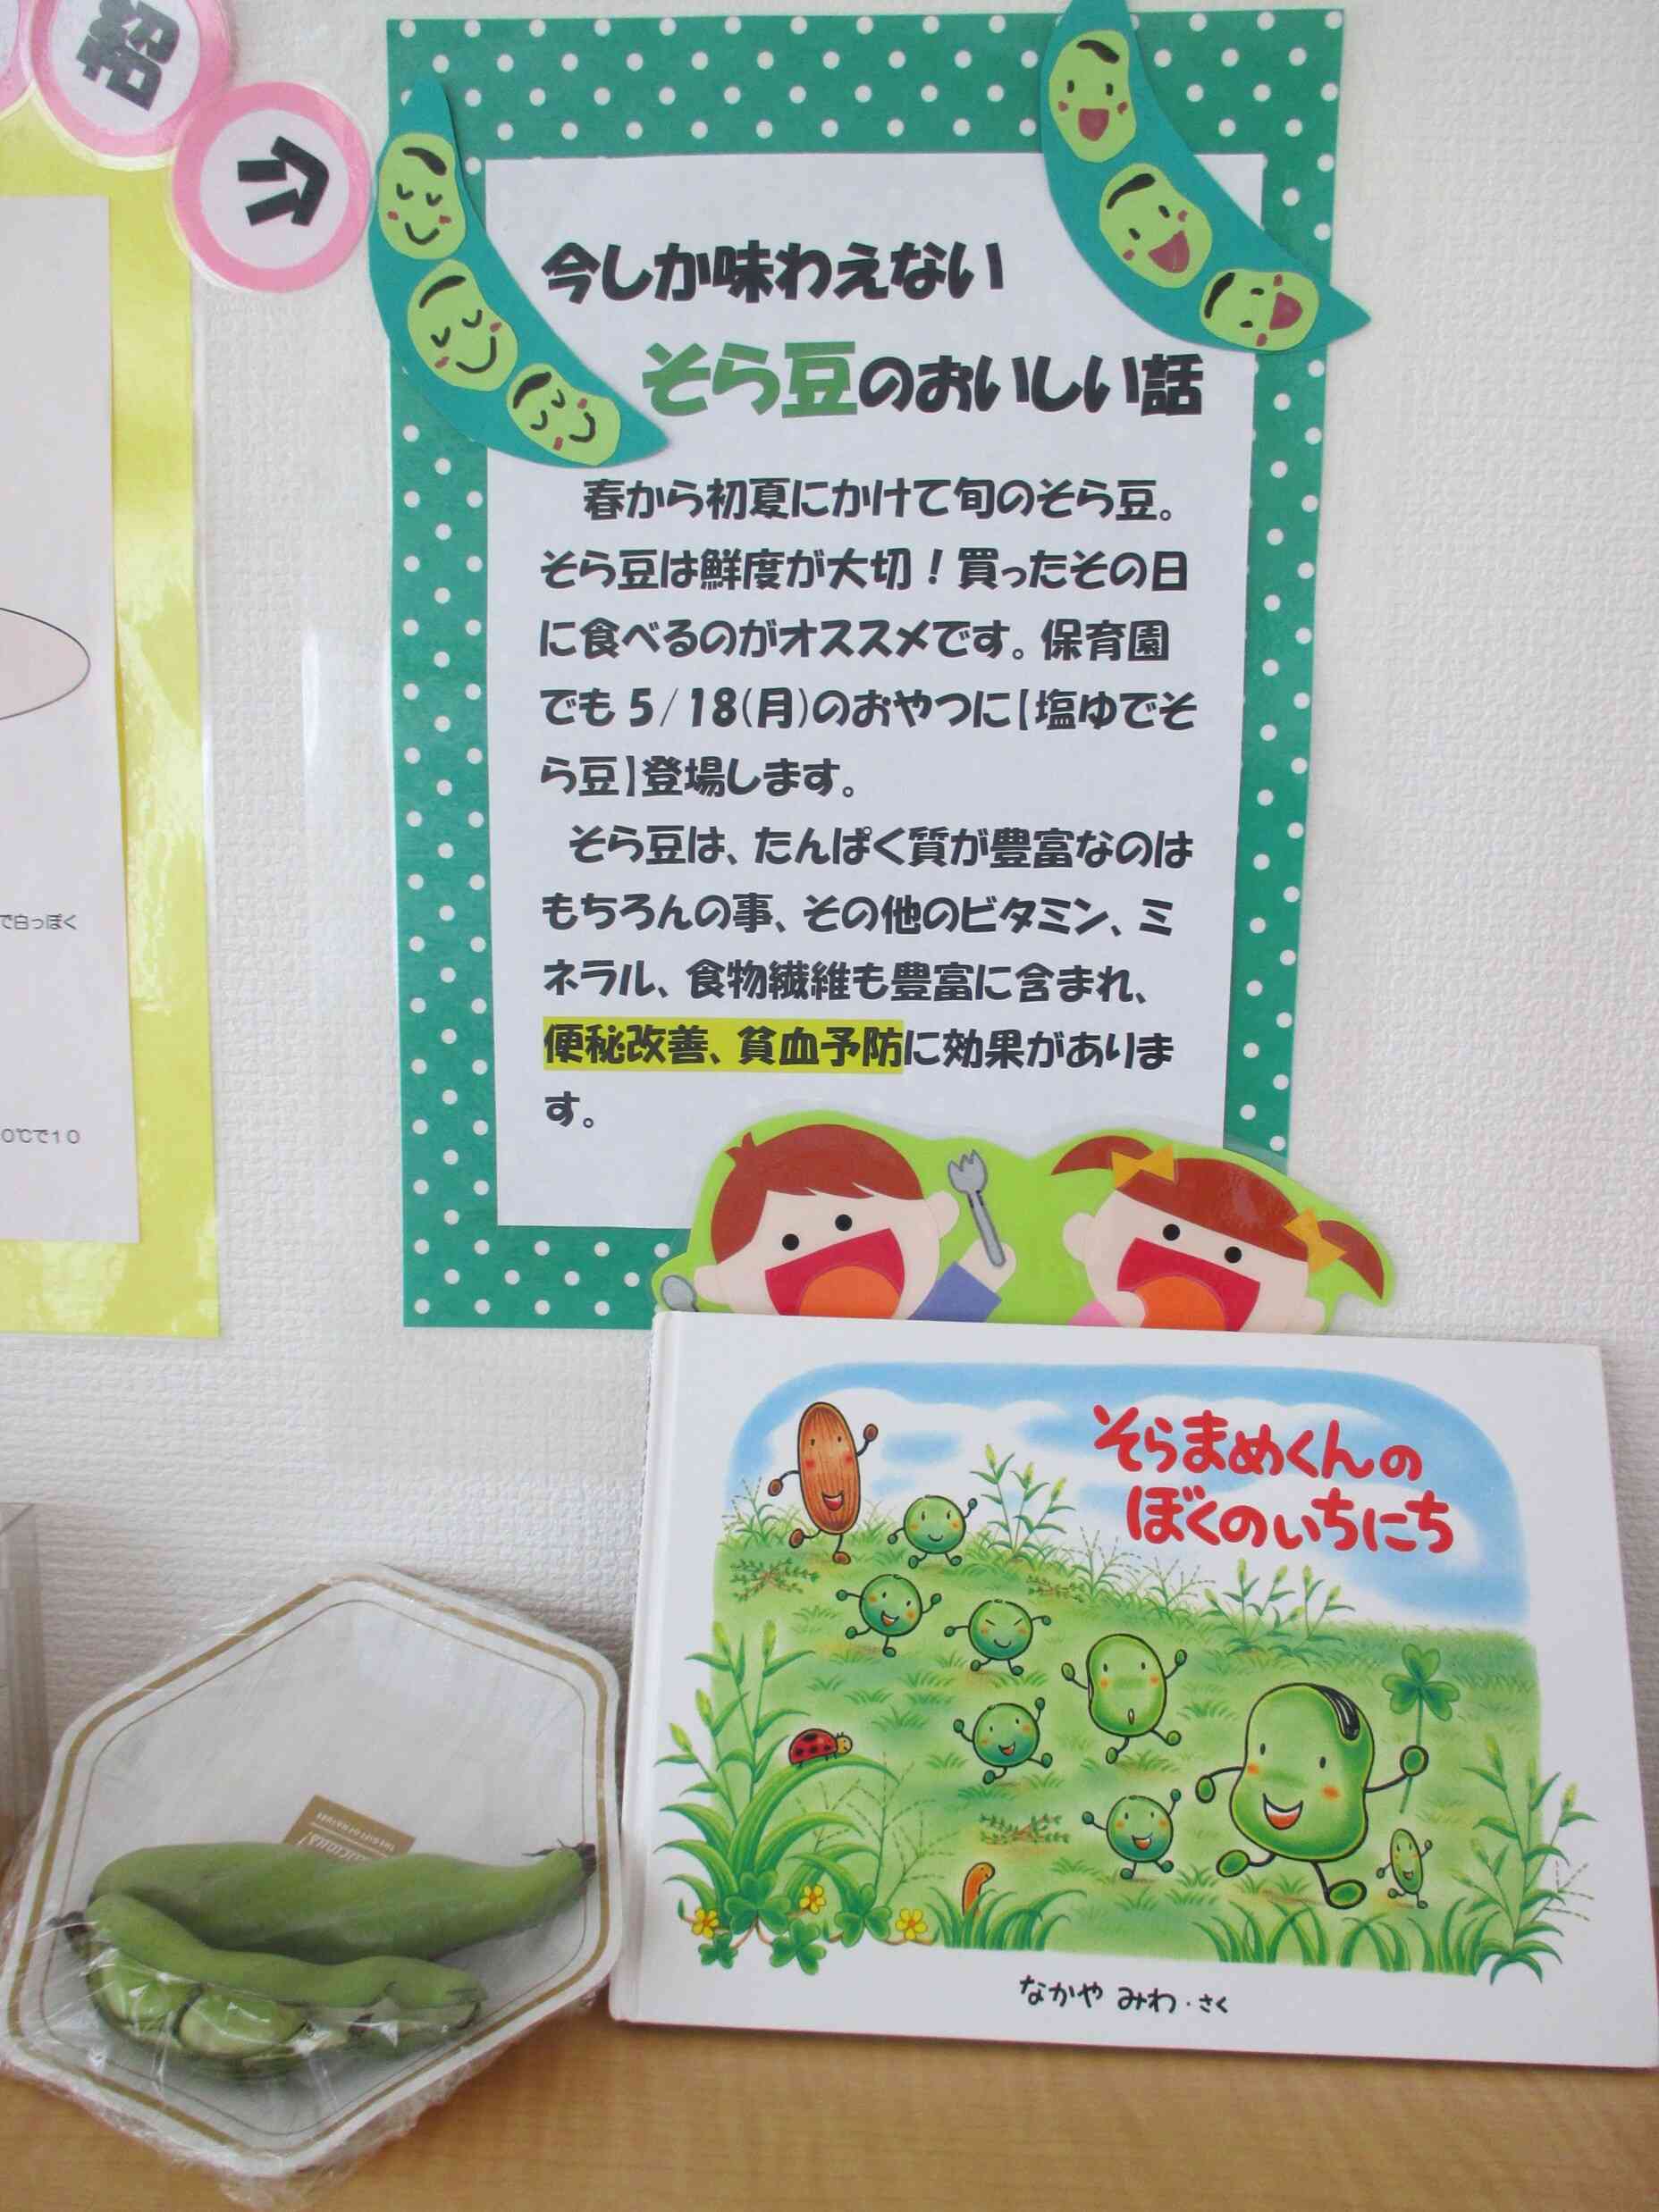 紹
介
で白っぽく
0℃で10
今しか味わえない
そら豆のおいしい話
春から初夏にかけて旬のそら豆。
そら豆は鮮度が大切！買ったその日
に食べるのがオススメです。保育園
でも 5/18(月)のおやつに【塩ゆでそ
ら豆】登場します。
そら豆は、たんぱく質が豊富なのは
もちろんの事、その他のビタミン、ミ
ネラル、食物繊維も豊富に含まれ、
便秘改善、貧血予防に効果がありま
す。
そらまめくんの
ぼくのいちにち
なかや みわ・さく